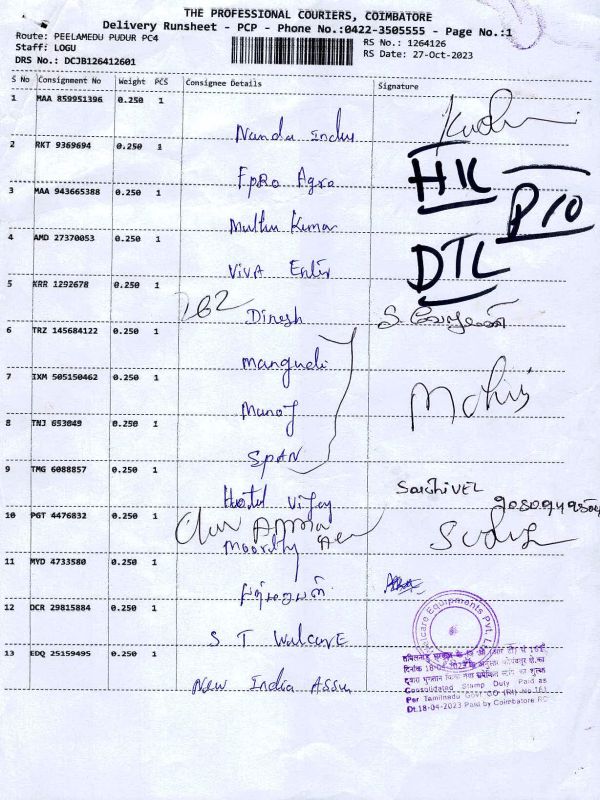 THE PROFESSIONAL COURIERS, COIMBATORE
Delivery Runsheet - PCP - Phone No.:0422-3505555 - Page No.:1
Route: PEELAMEDU PUDUR PC4
Staff: LOGU
DRS No.: DCJB126412601
RS No.: 1264126
RS Date: 27-Oct-2023
S No Consignment No Weight PCS Consignee Details Signature
1 MAA 859951396 0.250 1
Nandu Indus
2 RKT 9369694 0.250 1
Fpro Agro
HK
3 MAA 943665388 0.250 1
Muthu Kumar
Pro
4 AMD 27370053 0.250 1
Viva Enter
DTL
5 KRR 1292678 0.250 1
262
Dinesh
6 TRZ 145684122 0.250 1
7 IXM 505150462 0.250 1
Manoj
8 TNJ 653049 0.250 1
SPAN
9 TMG 6088857 0.250 1
Hostel Vijay
SakthiVEL
10 PGT 4476832 0.250 1
Moorthy
11 MYD 4733580 0.250 1
12 DCR 29815884 0.250 1
S T Welcare
13 EDQ 25159495 0.250 1
New India Assu
Equipments Pvt. Ltd.
Consolidated Stamp Duty Paid as
Per Tamilnadu Govt GO (Rt) No.161
Dt.18-04-2023 Paid by Coimbatore RC